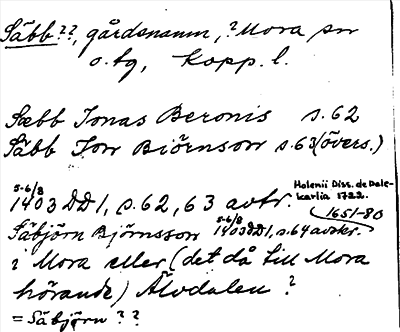 Säbb??, gårdsnamn, ?Mora sn
o. tg, Kopp. l.
Sæbb Jonas Beronis s. 62
Säbb Jon Björnson s. 63 (övers.)
5-6/8
1403 DD1, s. 62, 63 avtr.
Holenii Diss. de Dale-
karlia 1722.
1651-80
Säbjörn Bjørnsson 5-6/8 1403 DD1, s. 64 avskr.
i Mora eller (det då till Mora
hörande) Älvdalen?
= Säbjörn??